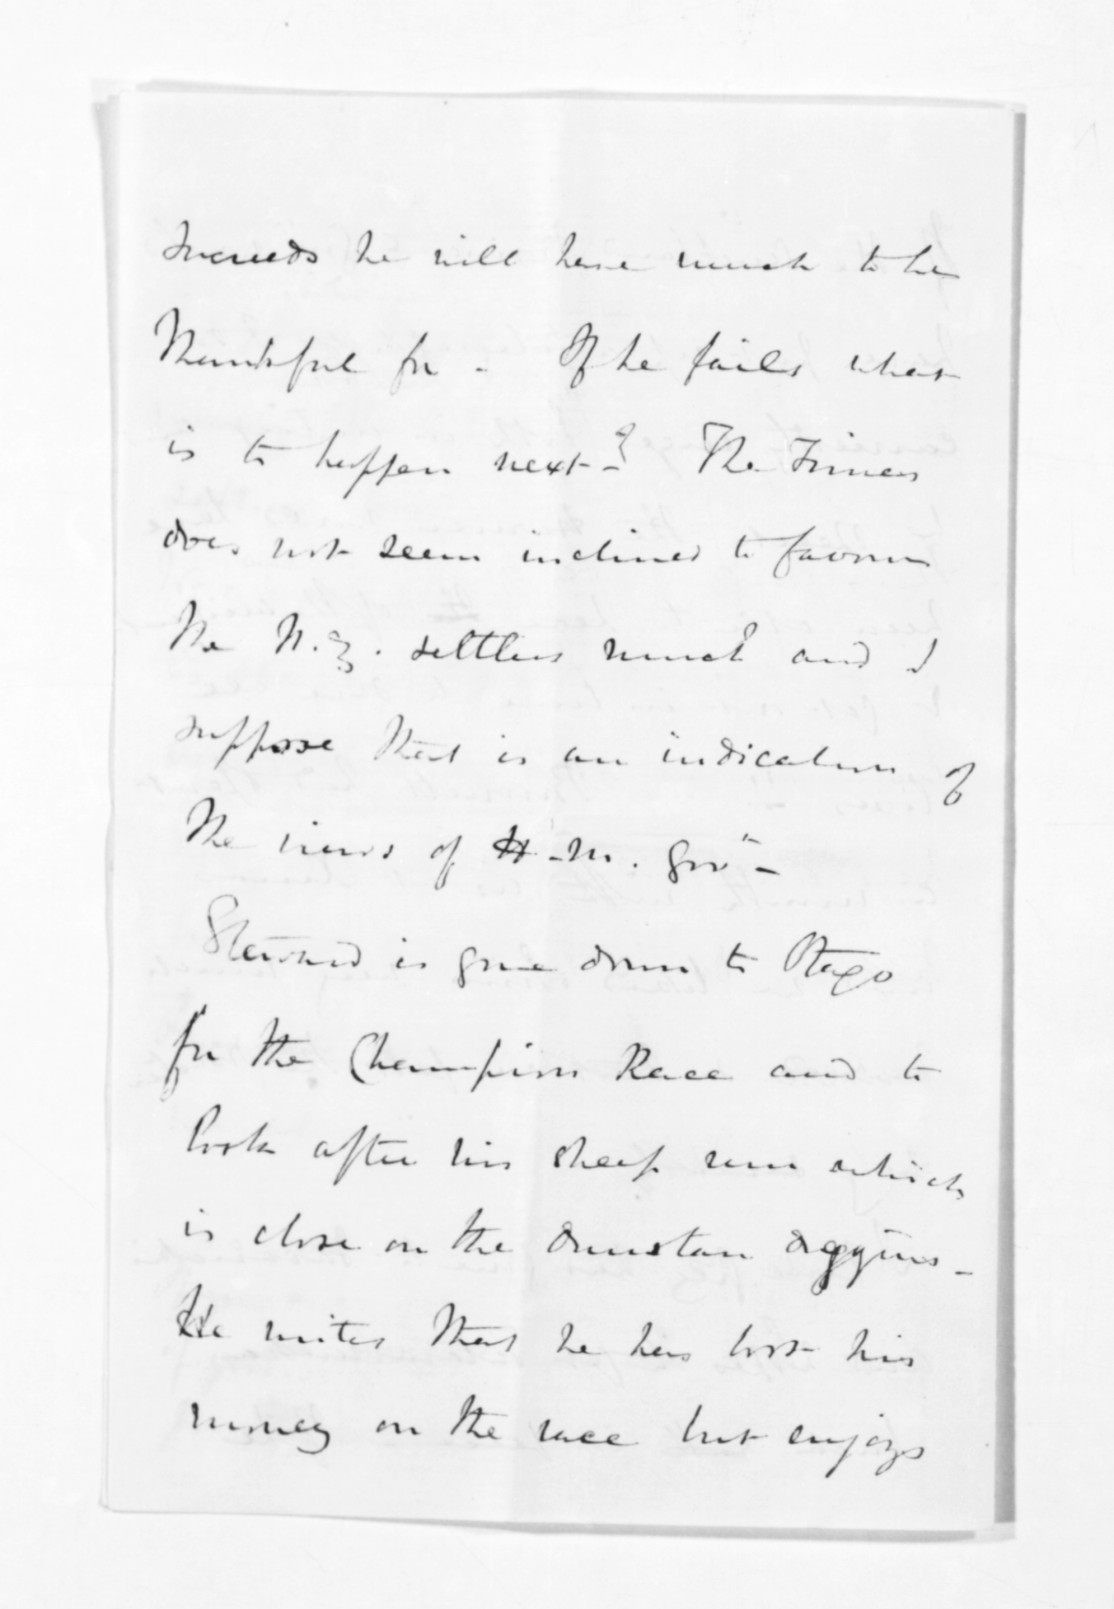 succeeds he will have much to be
thankful for - If he fails what
is to happen next -? The Times
does not seem inclined to favour
the N.Z. settlers much and I
suppose that is an indication of
the views of H.M. Govt -
Steward is gone down to Otago
for the Champion Race and to
look after his sheep run which
is close on the Dunstan diggins -
He writes that he has lost his
money on the race but enjoys